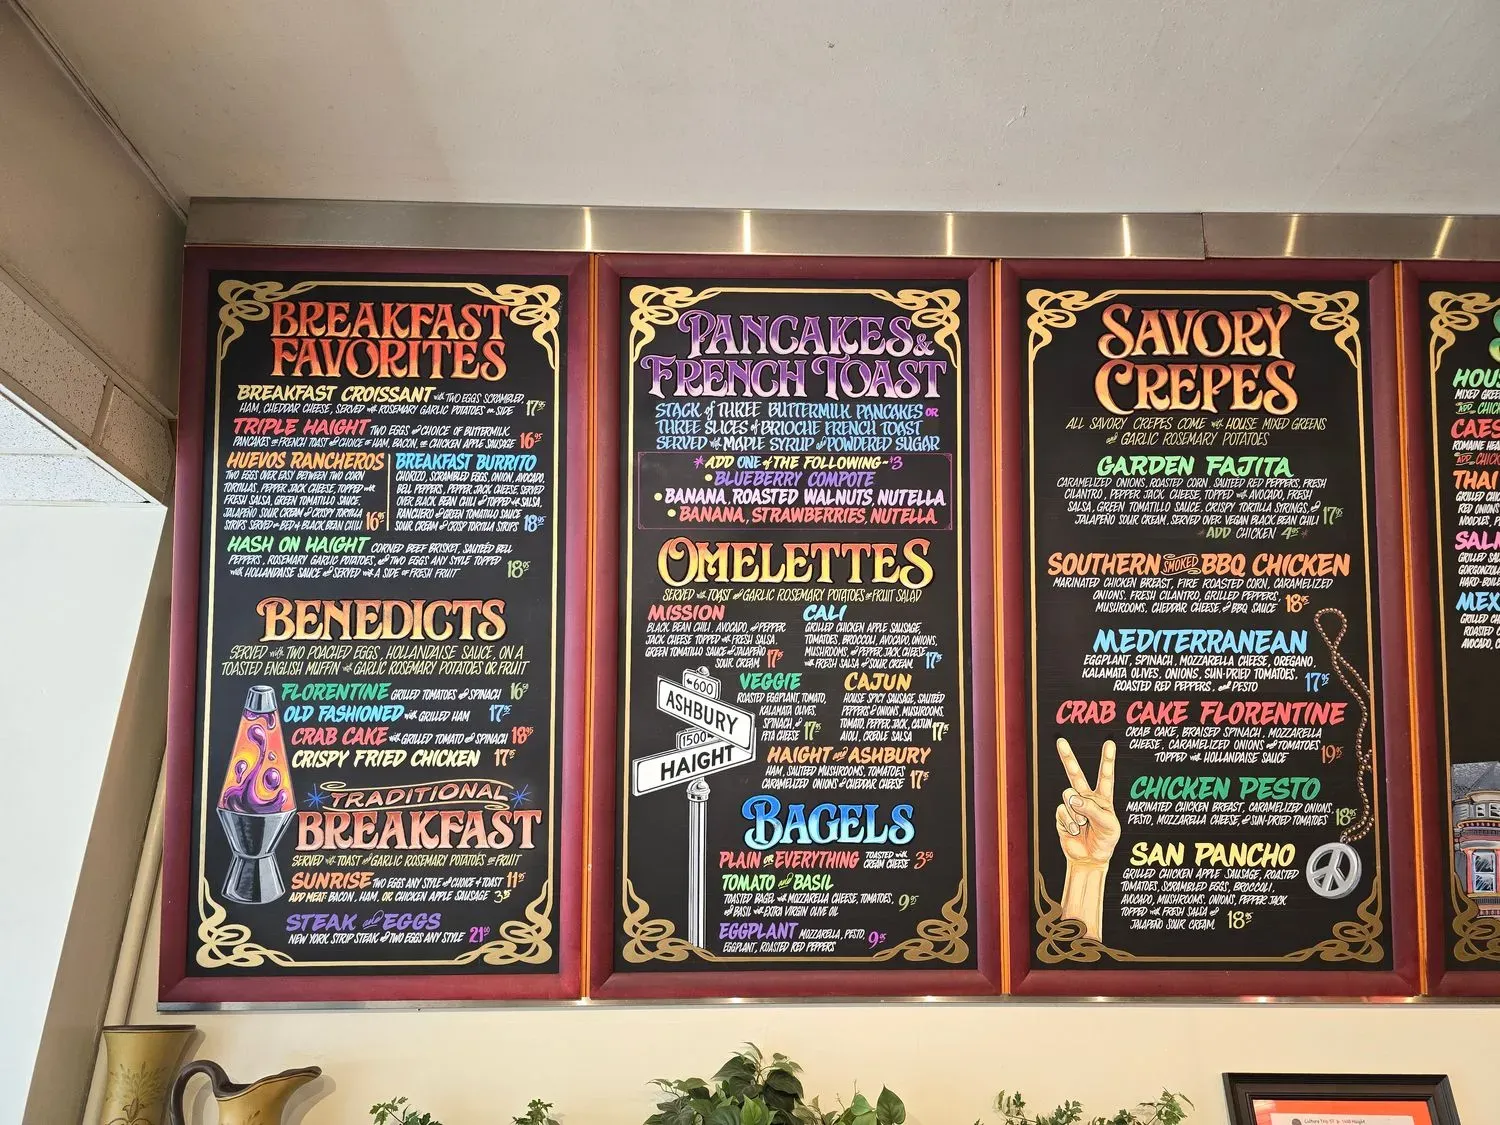 BREAKFAST
FAVORITES
BREAKFAST CROISSANT with TWO EGGS SCRAMBLED,
HAM, CHEDDAR CHEESE, SERVED with ROSEMARY GARLIC POTATOES on SIDE 17⁹⁵
TRIPLE HAIGHT TWO EGGS and CHOICE of BUTTERMILK
PANCAKES or FRENCH TOAST and CHOICE of HAM, BACON, or CHICKEN APPLE SAUSAGE 16⁹⁵
HUEVOS RANCHEROS
TWO EGGS OVER EASY BETWEEN TWO CORN
TORTILLAS, PEPPER JACK CHEESE, TOPPED with
FRESH SALSA, GREEN TOMATILLO SAUCE,
JALAPEÑO SOUR CREAM & CRISPY TORTILLA
STRIPS SERVED on BED of BLACK BEAN CHILI 16⁹⁵
BREAKFAST BURRITO
CHORIZO, SCRAMBLED EGGS, ONION, AVOCADO,
BELL PEPPERS, PEPPER JACK CHEESE, SERVED
OVER BLACK BEAN CHILI and TOPPED with SALSA,
RANCHERO and GREEN TOMATILLO SAUCE
SOUR CREAM and CRISP TORTILLA STRIPS 18⁹⁵
HASH ON HAIGHT CORNED BEEF BRISKET, SAUTÉED BELL
PEPPERS, ROSEMARY GARLIC POTATOES, and TWO EGGS ANY STYLE TOPPED
with HOLLANDAISE SAUCE and SERVED with A SIDE of FRESH FRUIT 18⁹⁵
BENEDICTS
SERVED with TWO POACHED EGGS, HOLLANDAISE SAUCE, ON A
TOASTED ENGLISH MUFFIN with GARLIC ROSEMARY POTATOES OR FRUIT
FLORENTINE GRILLED TOMATOES and SPINACH 16⁹⁵
OLD FASHIONED with GRILLED HAM 17⁹⁵
CRAB CAKE with GRILLED TOMATO and SPINACH 18⁹⁵
CRISPY FRIED CHICKEN 17⁹⁵
TRADITIONAL
BREAKFAST
SERVED with TOAST and GARLIC ROSEMARY POTATOES or FRUIT
SUNRISE TWO EGGS ANY STYLE and CHOICE of TOAST 11⁹⁵
ADD MEAT: BACON, HAM, OR CHICKEN APPLE SAUSAGE 3⁹⁵
STEAK and EGGS
NEW YORK STRIP STEAK and TWO EGGS ANY STYLE 21⁹⁵
PANCAKES &
FRENCH TOAST
STACK of THREE BUTTERMILK PANCAKES OR
THREE SLICES of BRIOCHE FRENCH TOAST
SERVED with MAPLE SYRUP and POWDERED SUGAR
*ADD ONE of THE FOLLOWING-$3
• BLUEBERRY COMPOTE
• BANANA, ROASTED WALNUTS, NUTELLA
• BANANA, STRAWBERRIES, NUTELLA
OMELETTES
SERVED with TOAST and GARLIC ROSEMARY POTATOES or FRUIT SALAD
MISSION
BLACK BEAN CHILI, AVOCADO, and PEPPER
JACK CHEESE TOPPED with FRESH SALSA,
GREEN TOMATILLO SAUCE and JALAPEÑO
SOUR CREAM 17⁹⁵
CALI
GRILLED CHICKEN APPLE SAUSAGE,
TOMATOES, BROCCOLI, AVOCADO, ONIONS,
MUSHROOMS, and PEPPER JACK CHEESE
with FRESH SALSA and SOUR CREAM 17⁹⁵
VEGGIE
ROASTED EGGPLANT, TOMATO,
KALAMATA OLIVES,
SPINACH, and
FETA CHEESE 17⁹⁵
CAJUN
HOUSE SPICY SAUSAGE, SAUTÉED
PEPPERS and ONIONS, MUSHROOMS,
TOMATO, PEPPER JACK, CAJUN
AIOLI, CREOLE SALSA 17⁹⁵
←600
ASHBURY
1500→
HAIGHT
HAIGHT and ASHBURY
HAM, SAUTEED MUSHROOMS, TOMATOES
CARAMELIZED ONIONS and CHEDDAR CHEESE 17⁹⁵
BAGELS
PLAIN OR EVERYTHING TOASTED with CREAM CHEESE 3⁵⁰
TOMATO and BASIL
TOASTED BAGEL with MOZZARELLA CHEESE, TOMATOES,
and BASIL with EXTRA VIRGIN OLIVE OIL 9⁹⁵
EGGPLANT MOZZARELLA, PESTO,
EGGPLANT, ROASTED RED PEPPERS 9⁹⁵
SAVORY
CREPES
ALL SAVORY CREPES COME with HOUSE MIXED GREENS
and GARLIC ROSEMARY POTATOES
GARDEN FAJITA
CARAMELIZED ONIONS, ROASTED CORN, SAUTEED RED PEPPERS, FRESH
CILANTRO, PEPPER JACK CHEESE, TOPPED with AVOCADO, FRESH
SALSA, GREEN TOMATILLO SAUCE, CRISPY TORTILLA STRINGS, and
JALAPEÑO SOUR CREAM, SERVED OVER VEGAN BLACK BEAN CHILI 17⁹⁵
* ADD CHICKEN 4⁹⁵ *
SOUTHERN SMOKED BBQ CHICKEN
MARINATED CHICKEN BREAST, FIRE ROASTED CORN, CARAMELIZED
ONIONS, FRESH CILANTRO, GRILLED PEPPERS,
MUSHROOMS, CHEDDAR CHEESE, and BBQ SAUCE 18⁹⁵
MEDITERRANEAN
EGGPLANT, SPINACH, MOZZARELLA CHEESE, OREGANO,
KALAMATA OLIVES, ONIONS, SUN-DRIED TOMATOES,
ROASTED RED PEPPERS, and PESTO 17⁹⁵
CRAB CAKE FLORENTINE
CRAB CAKE, BRAISED SPINACH, MOZZARELLA
CHEESE, CARAMELIZED ONIONS and TOMATOES
TOPPED with HOLLANDAISE SAUCE 19⁹⁵
CHICKEN PESTO
MARINATED CHICKEN BREAST, CARAMELIZED ONIONS,
PESTO, MOZZARELLA CHEESE, & SUN-DRIED TOMATOES 18⁹⁵
SAN PANCHO
GRILLED CHICKEN APPLE SAUSAGE, ROASTED
TOMATOES, SCRAMBLED EGGS, BROCCOLI,
AVOCADO, MUSHROOMS, ONIONS, PEPPER JACK
TOPPED with FRESH SALSA and
JALAPEÑO SOUR CREAM 18⁹⁵
MIXED
ROMAINE
THAI
GRILLED
RED ONIONS